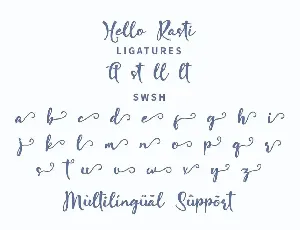 Hello Rasti
LIGATURES
A st ll lt
SWSH
a b c d e f g h i
j k l m n o p q r
s t u v w x y z
Mùltilingüäl Sûppõrt